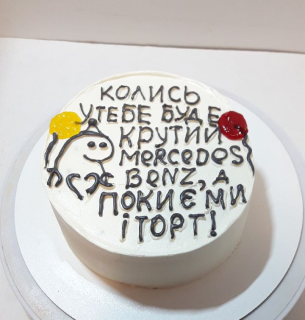 КОЛИСЬ
У ТЕБЕ БУДЕ
КРУТИЙ
MERCEDES
BENZ, А
ПОКИ Є МИ
І ТОРТ!